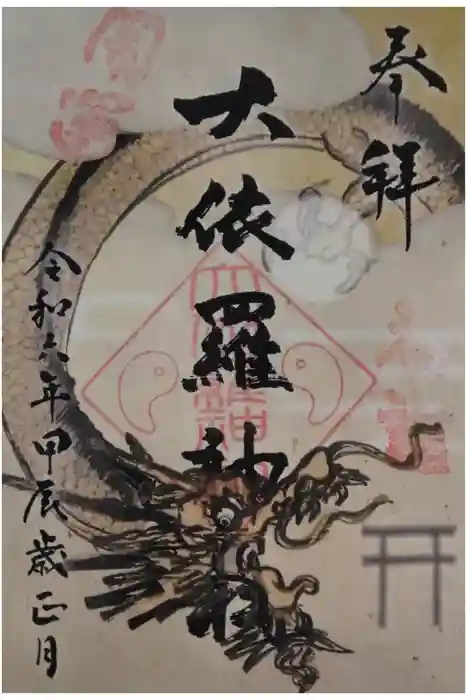 奉拝
大依羅神社
令和六年甲辰歳正月